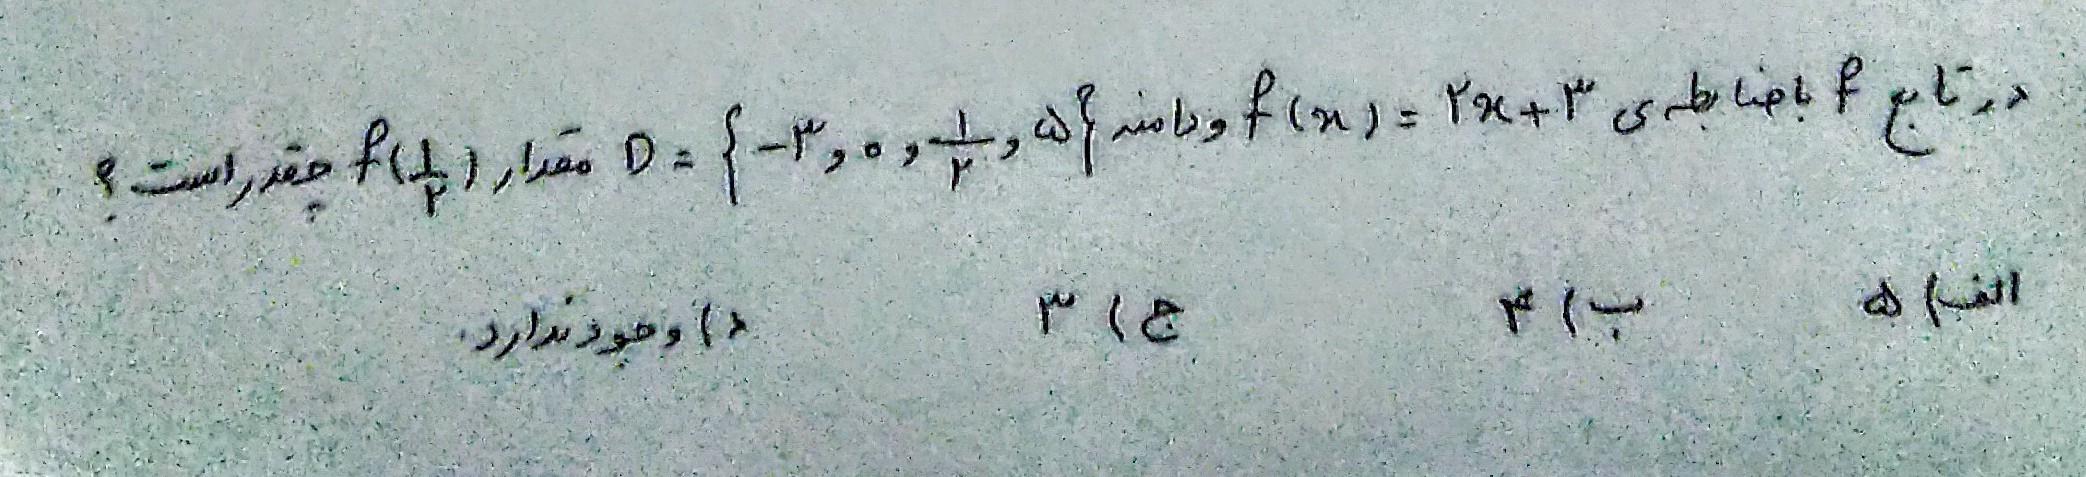 در تابع f با ضابطه ی f(x) = ۲x + ۳ و دامنه D = {-۳, ۰, ۱/۲, ۵} مقدار f(۱/۲) چقدر است ؟
الف) ۵ ب) ۴ ج) ۳ د) وجود ندارد.